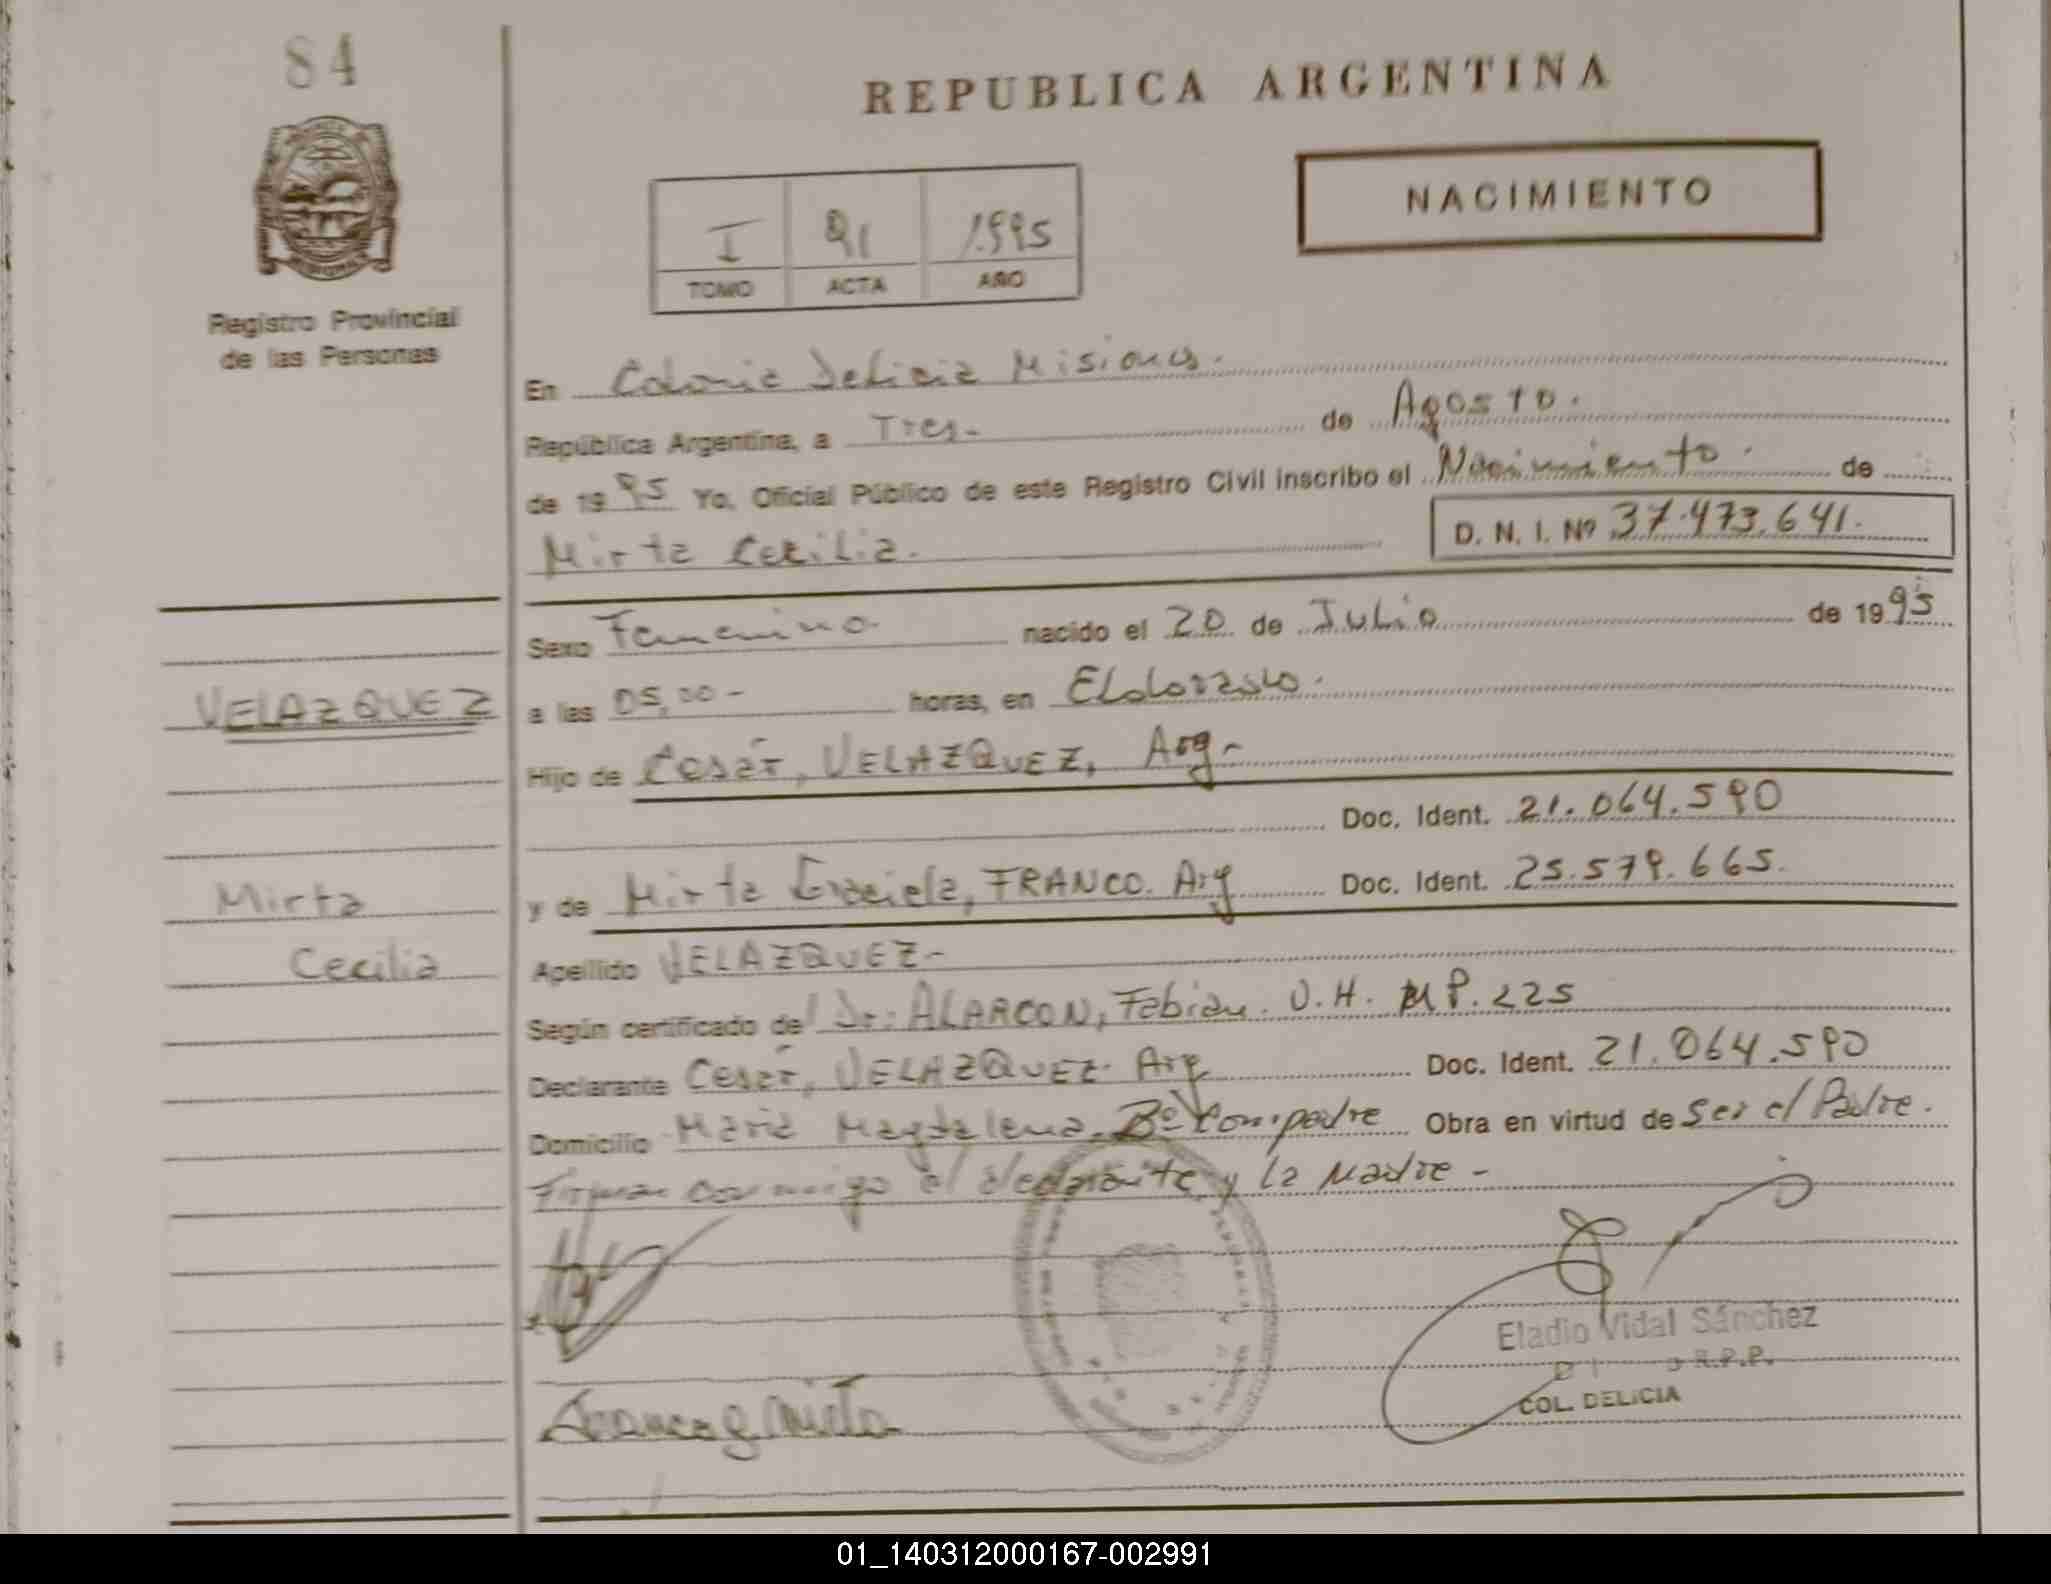 84
REPUBLICA ARGENTINA
NACIMIENTO
I 91 1.995
TOMO ACTA AÑO
Registro Provincial
de las Personas
En Colonia Delicia Misiones.
República Argentina, a Tres.- de Agosto.
de 1995 Yo, Oficial Público de este Registro Civil inscribo el Nacimiento. de
Mirta Cecilia. D. N. I. Nº 37.473.641.
Sexo Femenino. nacido el 20 de Julio de 1995
VELAZQUEZ
a las 05,00- horas, en Eldorado.
Hijo de Cesar, VELAZQUEZ, Arg-
Doc. Ident. 21.064.590
Mirta
y de Mirta Graciela, FRANCO. Arg Doc. Ident. 25.579.665.
Cecilia
Apellido VELAZQUEZ-
Según certificado del Dr: ALARCON, Fabian. U.H. MP. 225
Declarante Cesar, VELAZQUEZ. Arg Doc. Ident. 21.064.590
Domicilio Maria Magdalena. Bº Compadre Obra en virtud de Ser el Padre.
Firman conmigo el declarante y la Madre-
Eladio Vidal Sánchez
R.P.P.
COL. DELICIA
Franco g Mirta
01_140312000167-002991